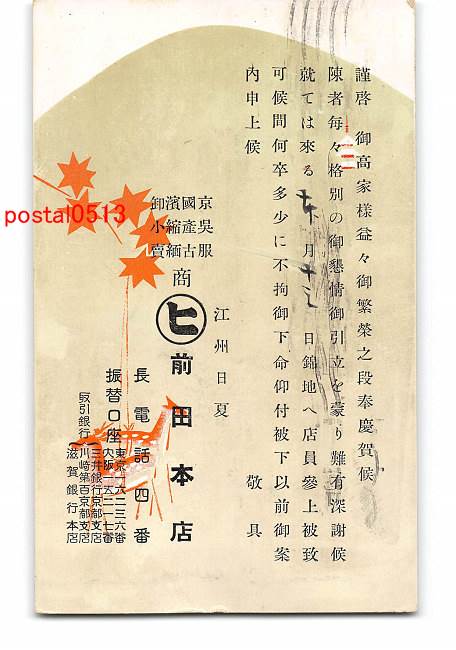 謹啓 御高家様益々御繁榮之段奉慶賀候
陳者毎々格別の御懇情御引立を蒙り難有深謝候
就ては來る 月十三日錦地へ店員參上被致
可候間何卒多少に不拘御下命仰付被下以前御案
內申上候 敬具
京吳服
國產古
濱縮緬
卸小賣
商
江州日夏
ヒ 前田本店
長電話四番
振替口座
東京一六二三六番
大阪一六二一七番
取引銀行
三井銀行京都支店
川崎第百京都支店
滋賀銀行本店
postal0513